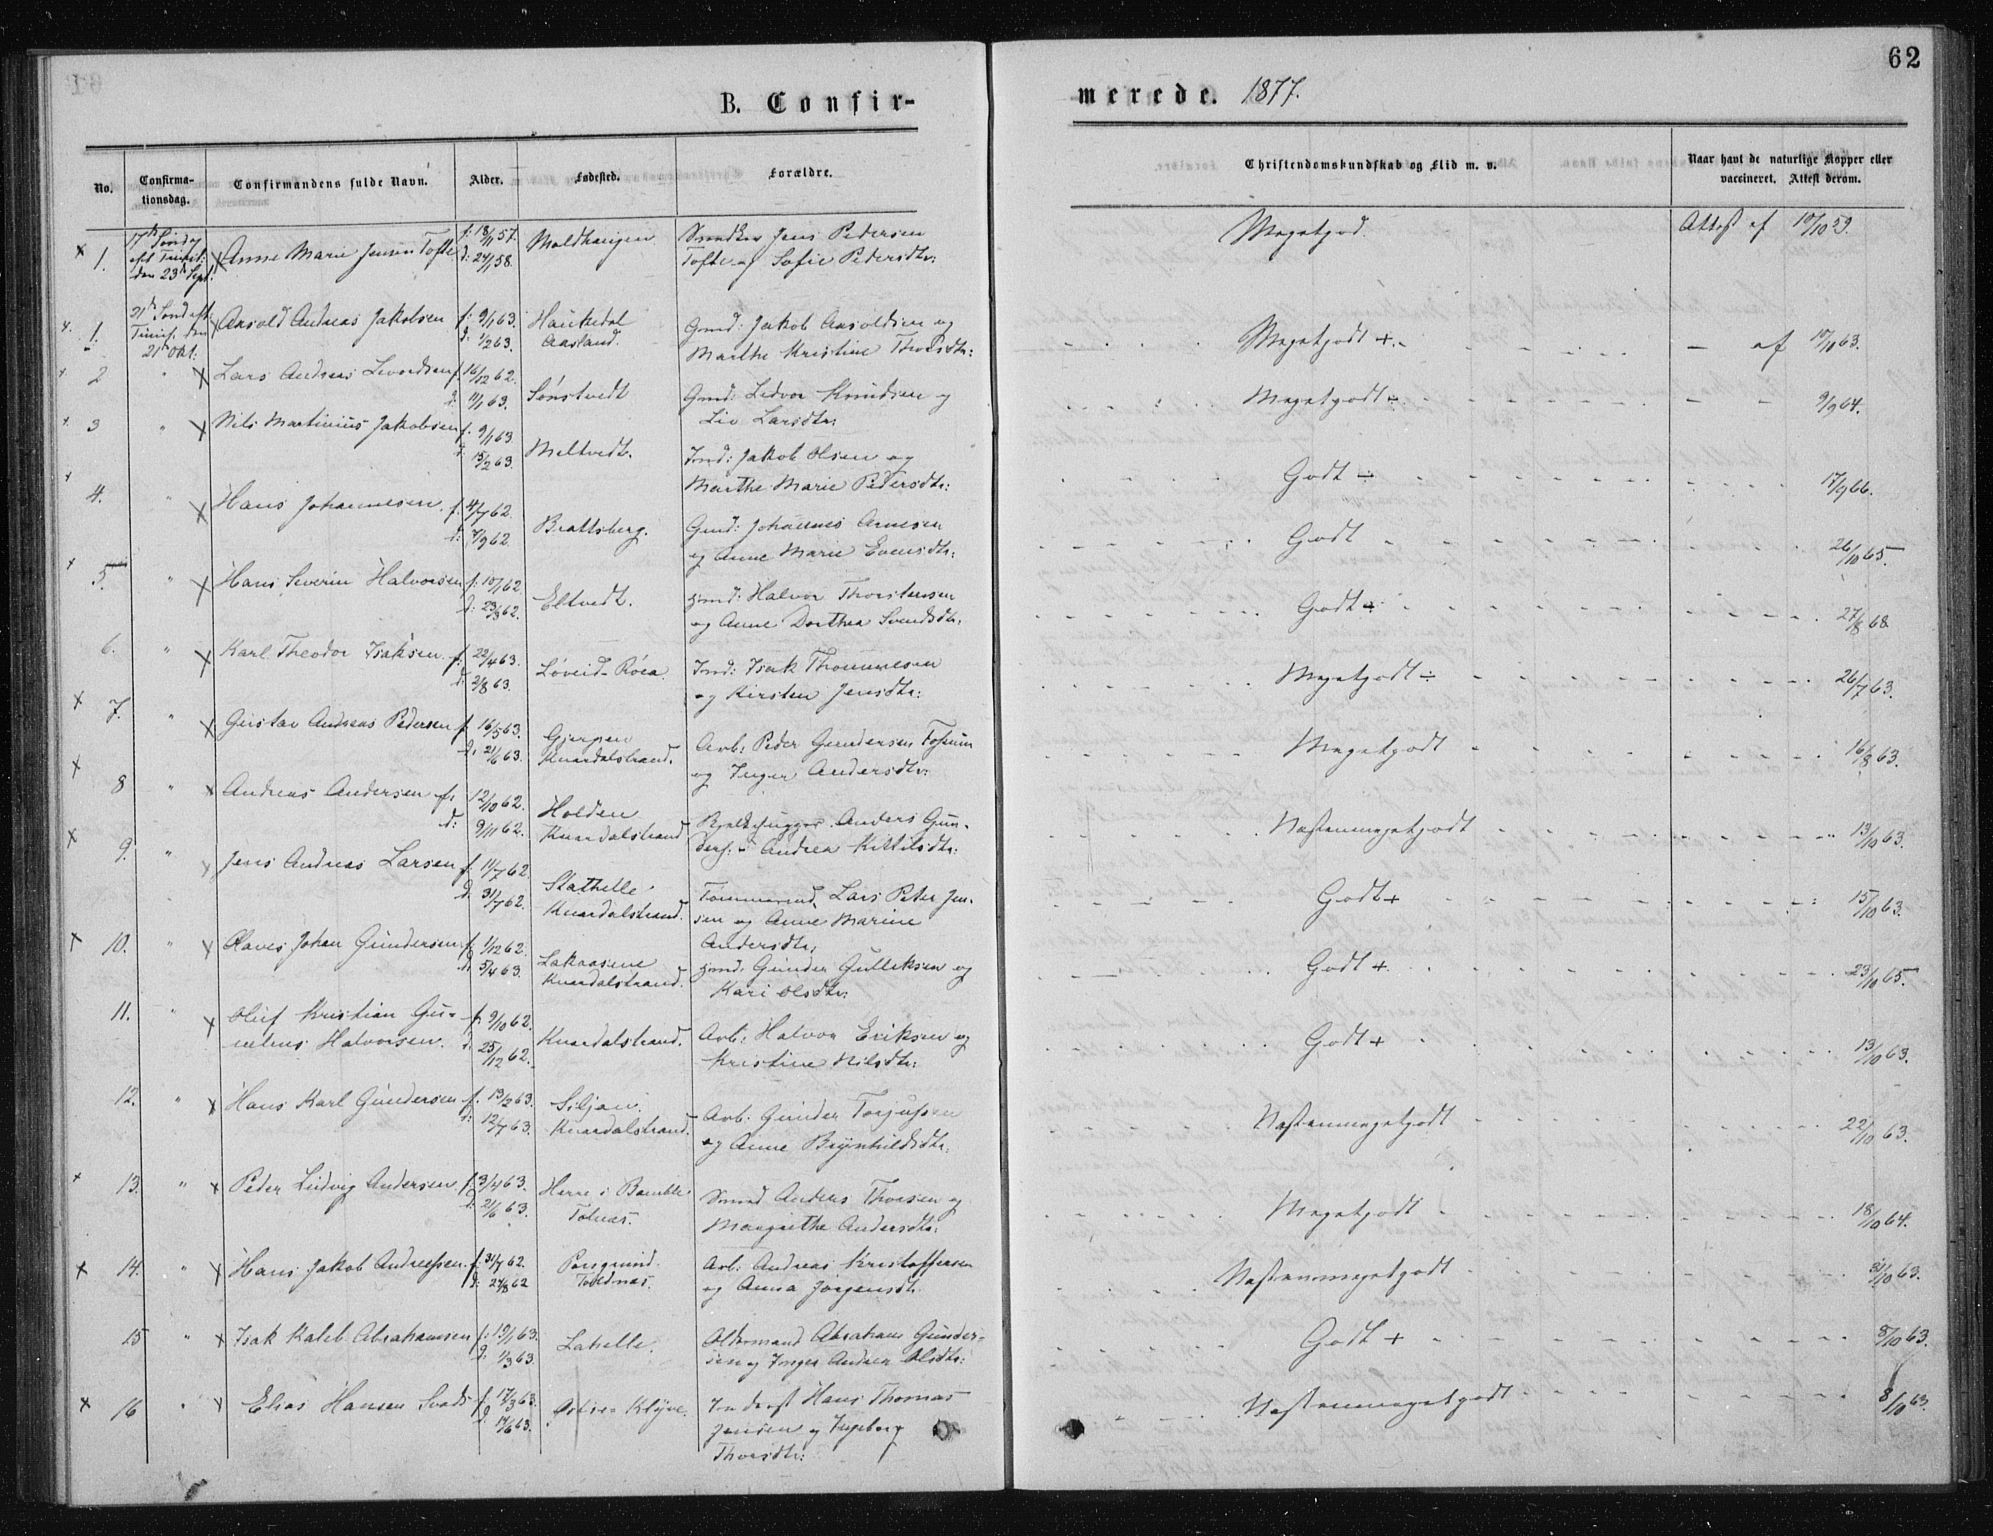 62
B. Confir-
merede. 1877.
No.
Confirma-
tionsdag.
Confirmandens fulde Navn.
Alder.
Fødested.
Forældre.
Christendomskundskab og Flid m. v.
Naar havt de naturlige Kopper eller
vaccineret. Attest derom.
1. 17de Sønd. eft Trinit: den 23de Sept. Anne Marie Jensen Tofte f: 18/1 57. d: 24/1 58. Jens Pedersen
Tofte og Sofie Pedersdtr: Megetgod. Attest af 10/10 59.
1. 21de Sønd eft. Trinit. den 21de Okt: Aasold Andreas Jakobsen f: 9/1 63. d: 1/2 63. Haukedal Aasland. Gmd: Jakob Aasoldsen og
Marthe Kristine Thorsdtr: Megetgodt +. - af 10/11 63.
2 " Lars Andreas Levordsen f. 16/12 62. d. 11/1 63. Sønstvedt Gmd: Ledvor Knudsen og
Liv Larsdtr: Megetgodt ÷ 9/9 64.
3 " Nils Martinius Jakobsen f. 9/1 63. d. 15/2 63. Meltvedt. Jakob Olsen og
Marthe Marie Pedersdtr: Godt ÷ 17/9 66.
4. " Hans Johannesen. f. 4/7 62. d: 7/9 62. Brattsberg. Gmd: Johannes Arnesen
og Anne Marie Evensdtr: Godt 26/10 65.
5 " Hans Severin Halvorsen f: 10/1 62. d: 23/3 62. Eltvedt. Halvor Thorstensen
og Anne Dorthea Svendsdtr. Godt + 27/8 68
6. " Karl Theodor Isaksen. f: 22/4 63. d: 2/8 63. Løveid Isak Thommesen
og Kirsten Jensdtr: Megetgodt ÷ 26/7 63.
7. " Gustav Andreas Pedersen f. 16/5 63. d: 21/6 63. Gjerpen Knardalstrand. Arb: Peder Gundersen Fossum
og Inger Andersdtr. Megetgodt 16/8 63.
8 " Andreas Andersen f. 12/10 62. d: 9/11 62. Holden Knardalstrand Anders Gun-
ders: - Andrea Kittilsdtr: Næstenmegetgodt 13/10 63.
9. " Jens Andreas Larsen f. 11/7 62. d. 31/7 62. Stathelle Knardalstrand. Tømmermd. Lars Peter Jen-
sen og Anne Marine
Andersdtr. Godt + 15/10 63.
10. " Olaves Johan Gundersen f. 1/12 62. d. 5/4 63. Knardalstrand. Gunder Gulliksen og
Kari Olsdtr: Godt + 23/10 65.
11. " Oluf Kristian Gu-
nelius Halvorsen. f. 9/10 62. d. 25/12 62. Knardalstrand. Arb: Halvor Eriksen og
Kristine Nilsdtr: Godt + 13/10 63.
12. " Hans Karl Gundersen f. 13/2 63. d: 12/7 63. Siljan. Knardalstrand. Arb: Gunder Torjussen
og Anne Brynhildsdtr. Næstenmegetgodt 22/10 63.
13. " Peder Ludvig Andersen f. 3/4 63. d. 21/6 63. Herre i Bamble Tolnæs. Anders Thorsen og
Margrethe Andersdtr: Megetgodt 18/10 64.
14. " Hans Jakob Andreassen f. 31/7 62. d. 24/8 62 Porsgrund. Toldnæs. Arb: Andreas Kristoffersen
og Anna Jørgensdtr. Næstenmegetgodt 31/10 63.
15 " Isak Kaleb Abrahamsen f: 19/1 63. d: 1/3 63. Lahelle. Oldermand Abraham Gunder-
sen og Inger Andrea Olsdtr: Godt + 8/10 63.
16 " Elias Hansen f. 17/3 63. d. 14/6 63. Østre Klyve. Hans Thomas
Jensen og Ingeborg
Thorsdtr: Næstenmegetgodt 8/10 63.